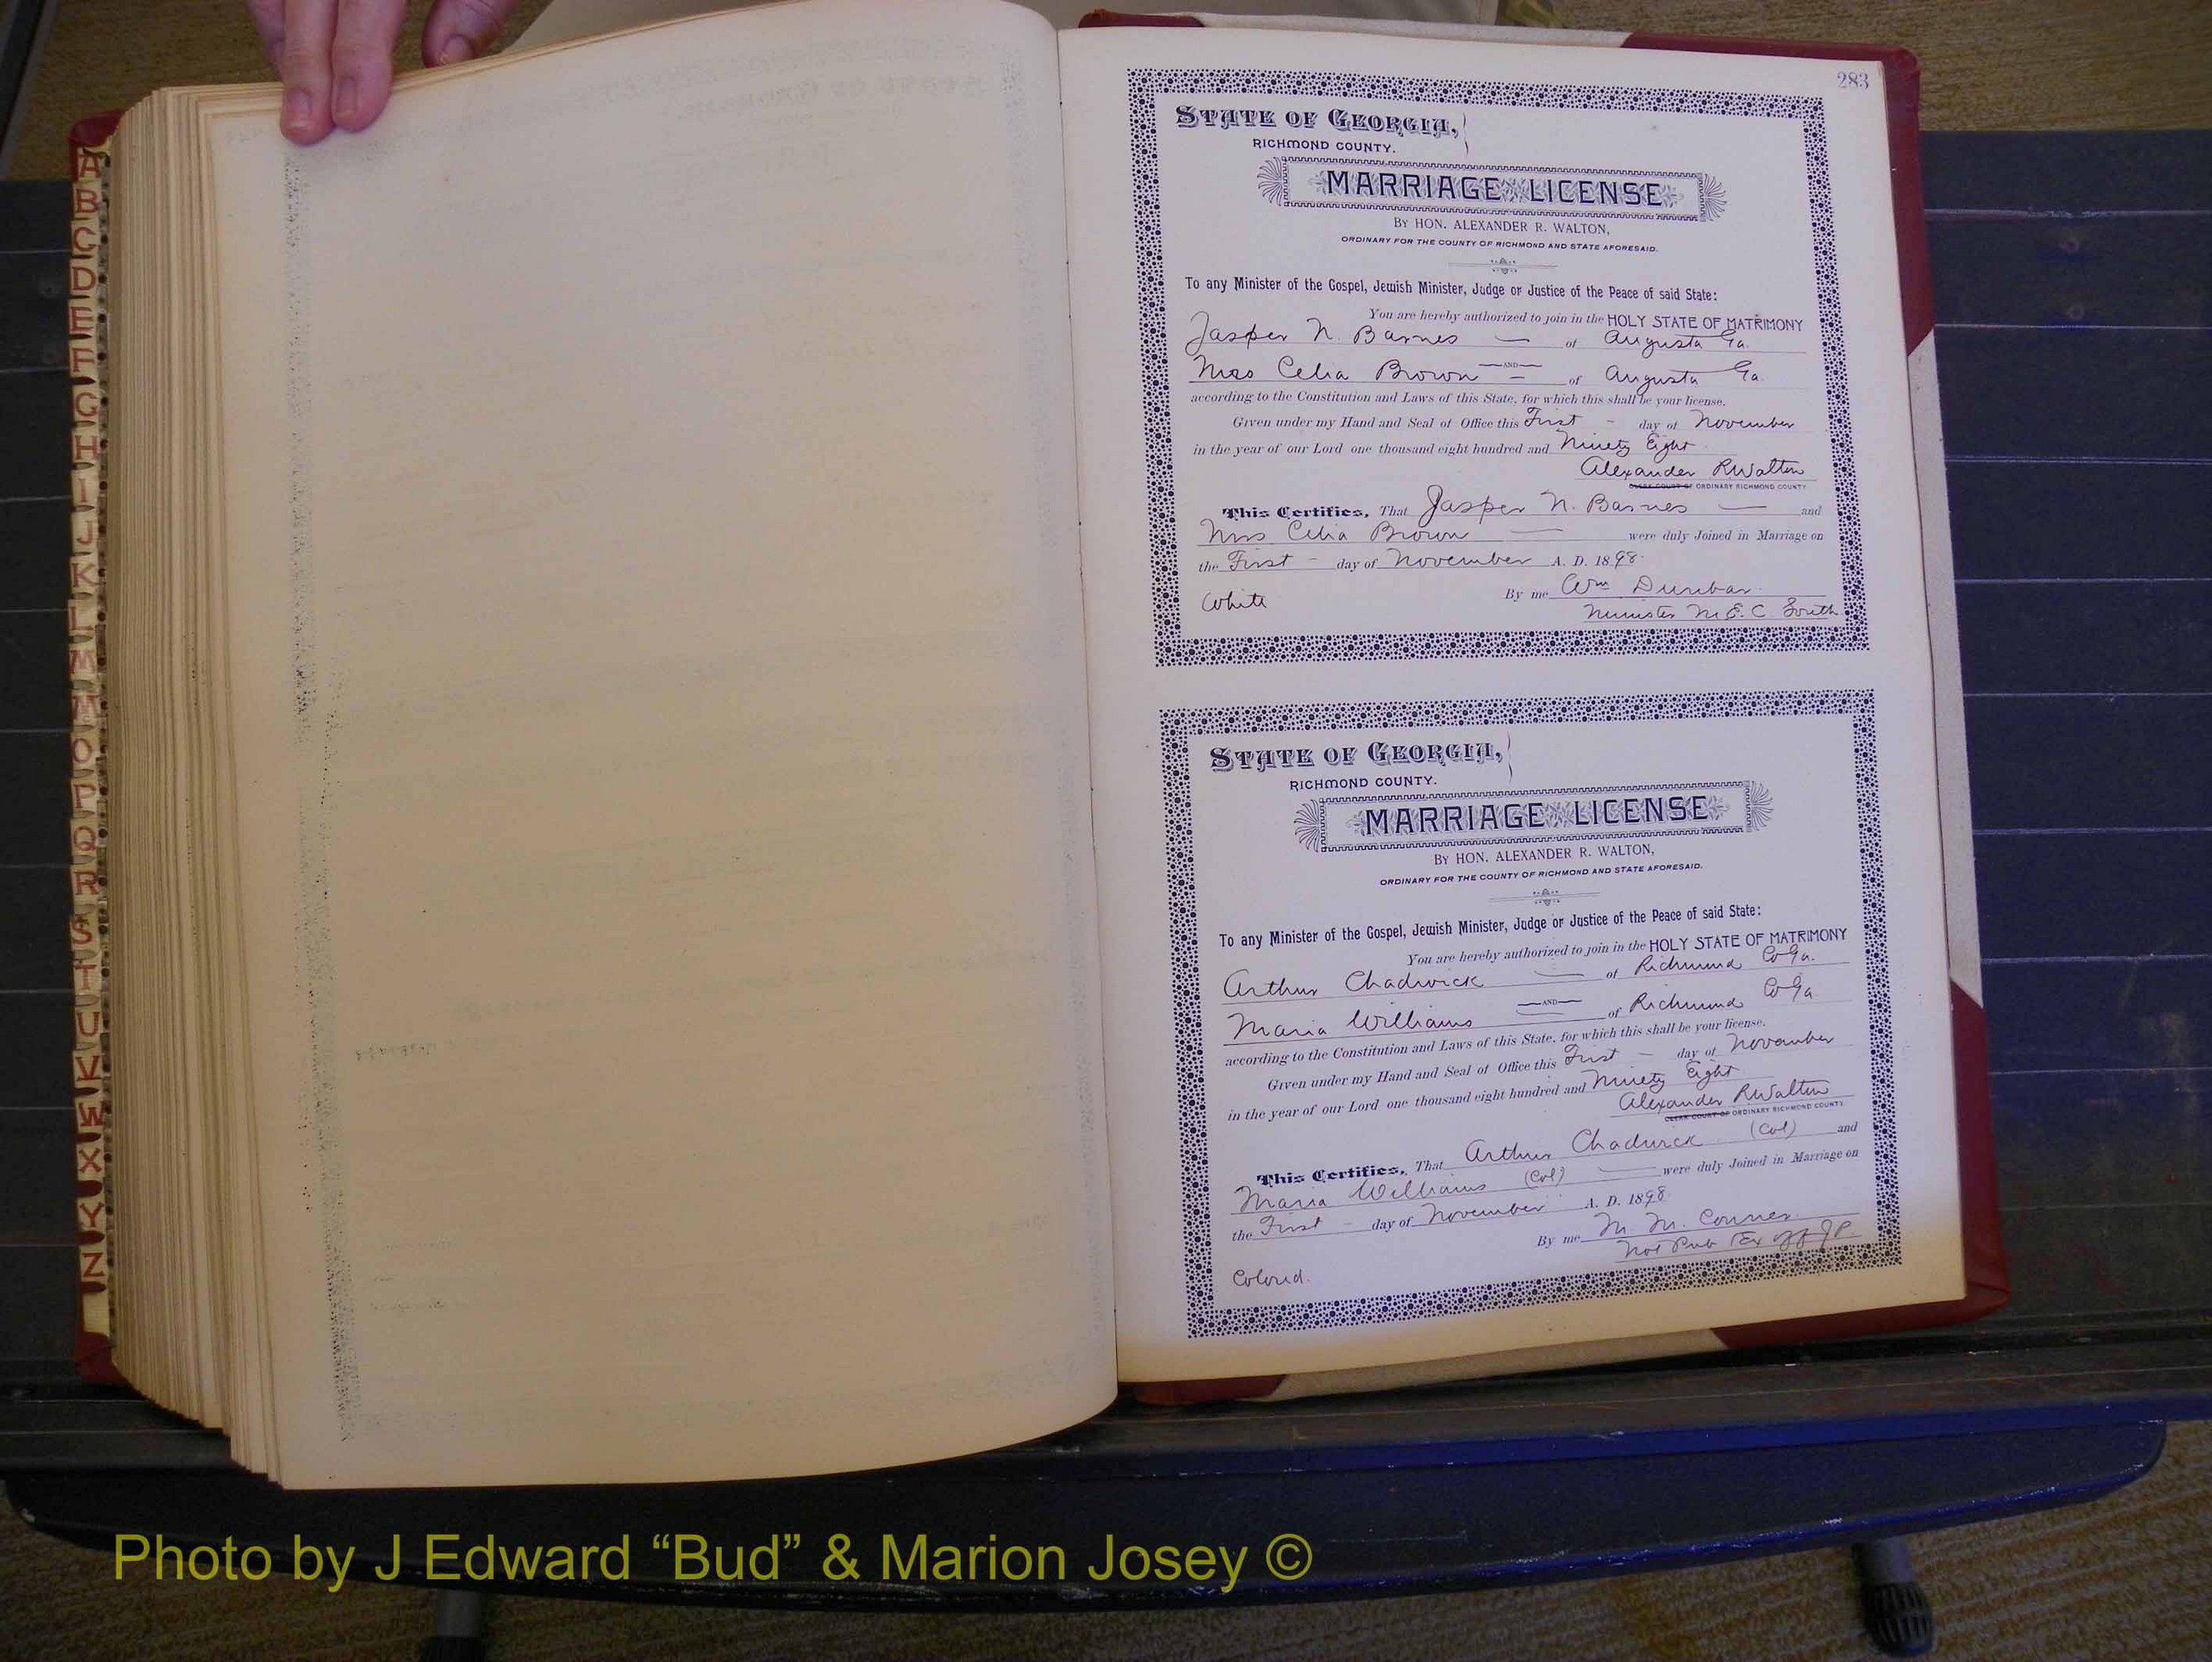 A
B
C
D
E
F
G
H
I
J
K
L
M
N
O
P
Q
R
S
T
U
V
W
X
Y
Z
283
STATE OF GEORGIA,
RICHMOND COUNTY.
MARRIAGE LICENSE
BY HON. ALEXANDER R. WALTON,
ORDINARY FOR THE COUNTY OF RICHMOND AND STATE AFORESAID.
To any Minister of the Gospel, Jewish Minister, Judge or Justice of the Peace of said State:
You are hereby authorized to join in the HOLY STATE OF MATRIMONY
Jasper N. Barnes of Augusta Ga.
AND
Miss Celia Brown of Augusta Ga.
according to the Constitution and Laws of this State, for which this shall be your license.
Given under my Hand and Seal of Office this First day of November
in the year of our Lord one thousand eight hundred and Ninety Eight
Alexander R Walton
CLERK COURT OF ORDINARY RICHMOND COUNTY
This Certifies, That Jasper N. Barnes and
Miss Celia Brown were duly Joined in Marriage on
the First day of November A. D. 1898
By me Wm Dunbar
White
Minister M. E. C. South
STATE OF GEORGIA,
RICHMOND COUNTY.
MARRIAGE LICENSE
BY HON. ALEXANDER R. WALTON,
ORDINARY FOR THE COUNTY OF RICHMOND AND STATE AFORESAID.
To any Minister of the Gospel, Jewish Minister, Judge or Justice of the Peace of said State:
You are hereby authorized to join in the HOLY STATE OF MATRIMONY
Arthur Chadwick of Richmond Co Ga.
AND
Maria Williams of Richmond Co Ga
according to the Constitution and Laws of this State, for which this shall be your license.
Given under my Hand and Seal of Office this First day of November
in the year of our Lord one thousand eight hundred and Ninety Eight
Alexander R Walton
CLERK COURT OF ORDINARY RICHMOND COUNTY.
This Certifies, That Arthur Chadwick (Col) and
Maria Williams (Col) were duly Joined in Marriage on
the First day of November A. D. 1898
By me M. M. Conner
Not Pub & Ex off J P.
Colored.
Photo by J Edward “Bud” & Marion Josey ©